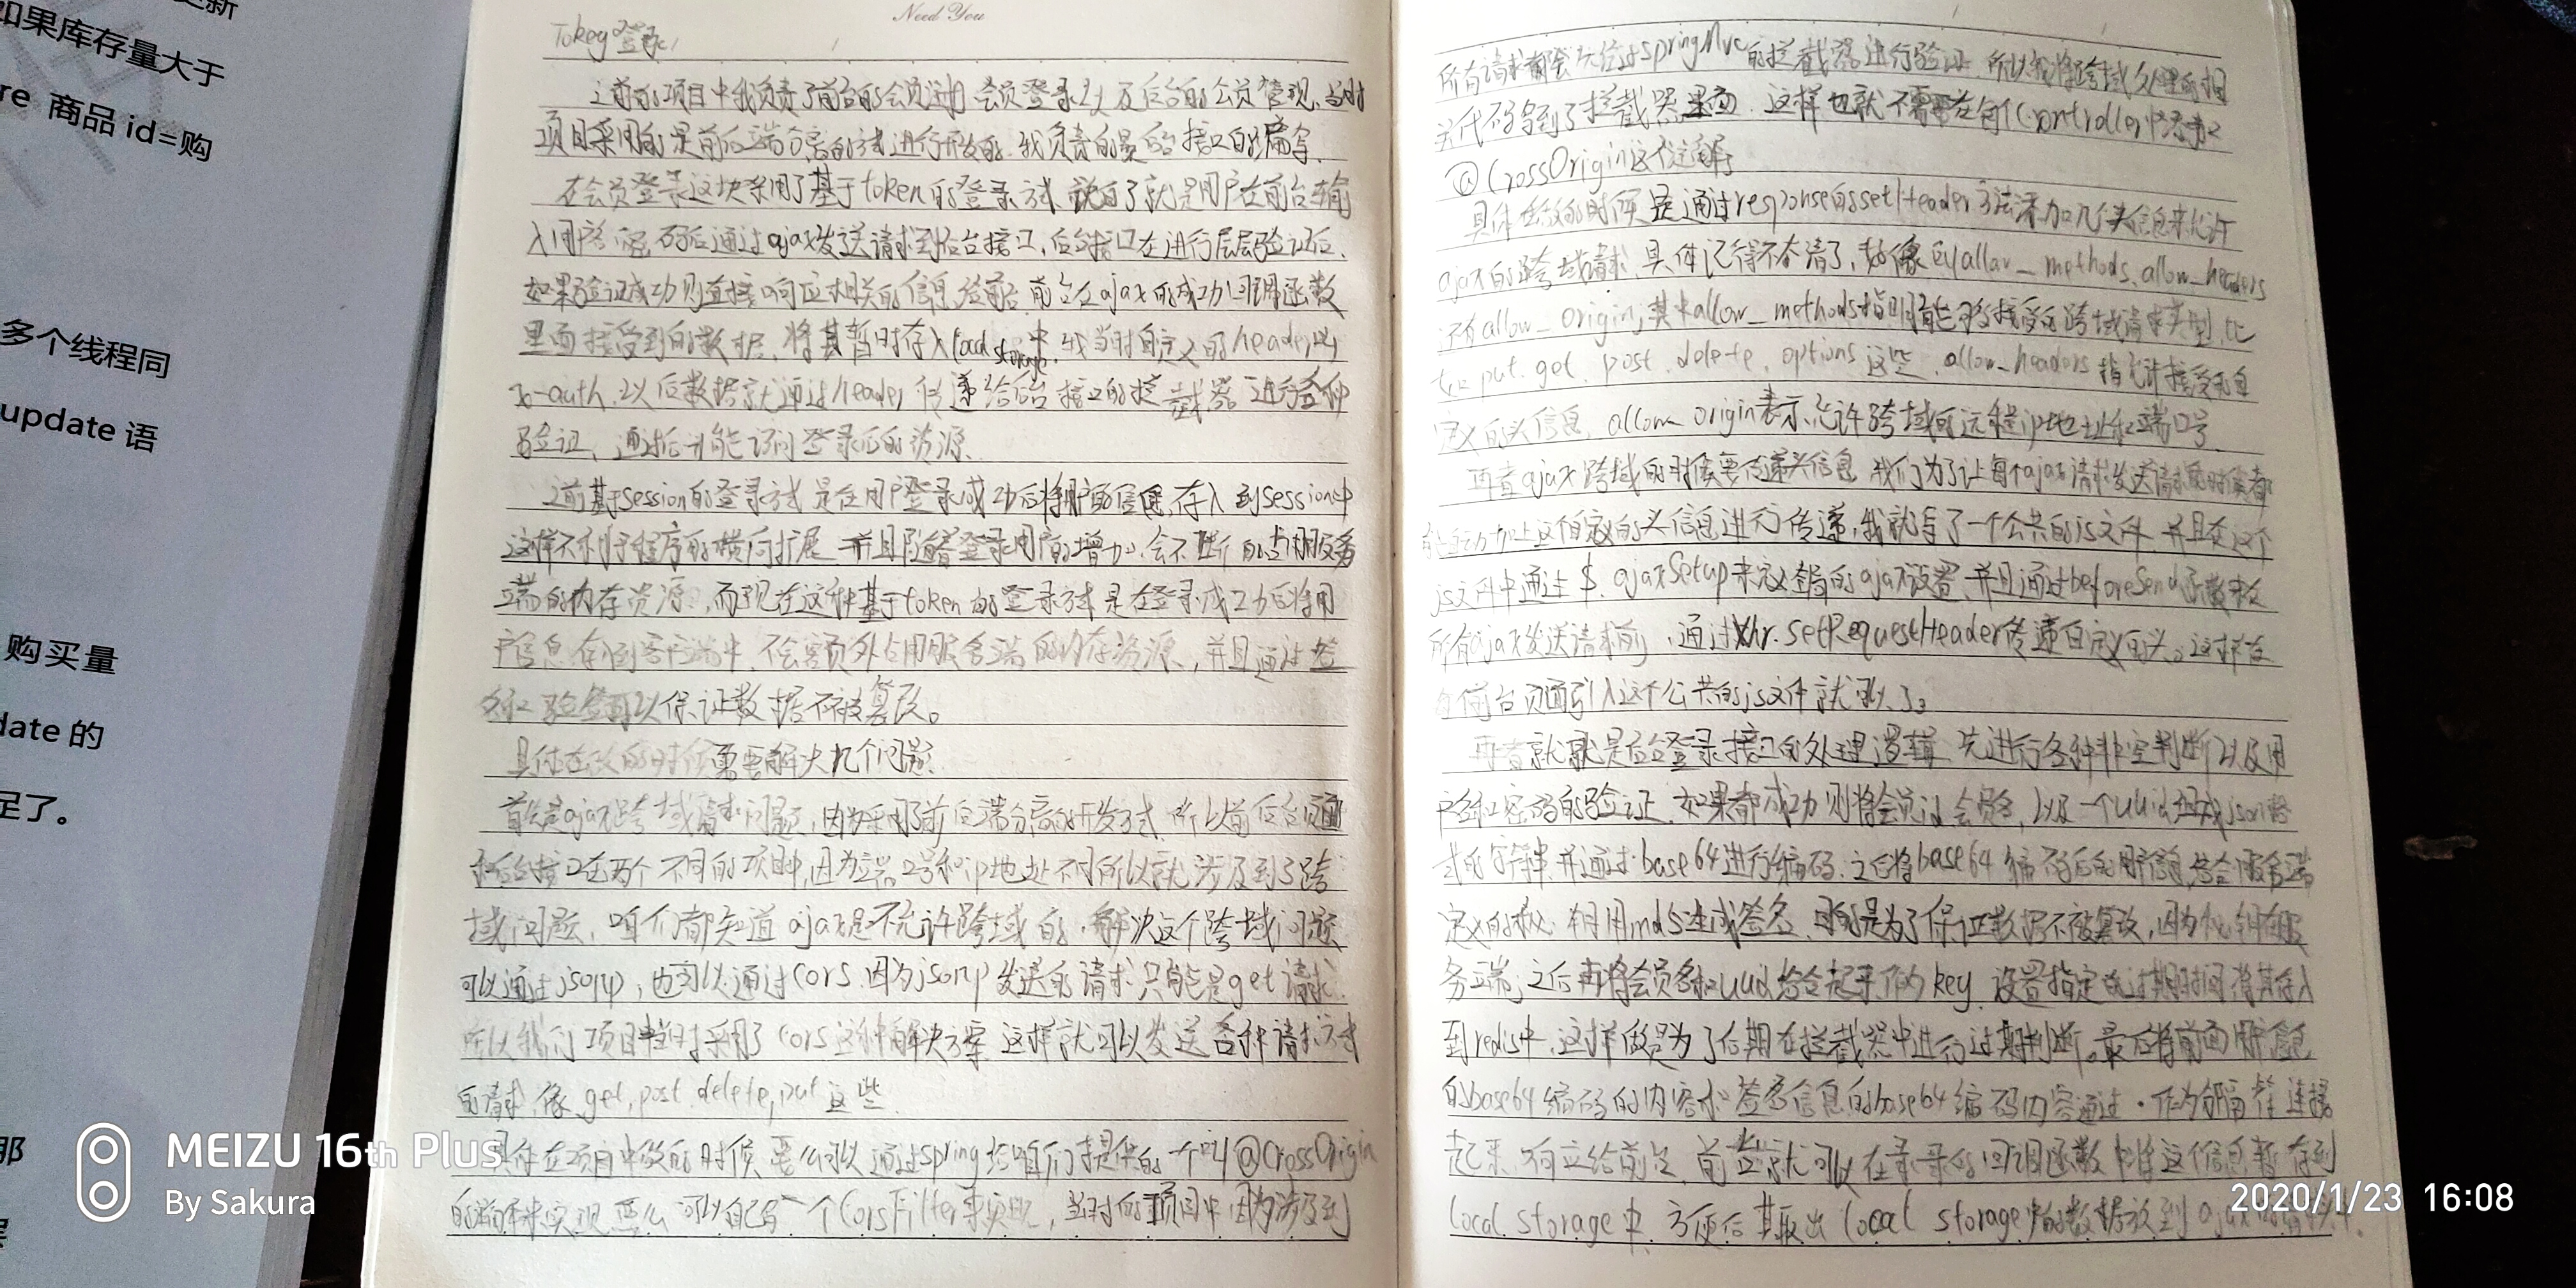 如果库存量大于
re 商品 id=购
多个线程同
update 语
购买量
date 的
足了。
那
Need You
Tokey登录
之前的项目中我负责了前台的会员注册 会员登录以及后台的会员管理,当时
项目采用的是前后端分离的方式进行开发的,我负责的是后台接口的编写.
在会员登录这块采用了基于token的登录方式,说白了就是用户在前台输
入用户名密码后通过ajax发送请求到后台接口,后台接口在进行层层验证后,
如果验证成功则直接响应相关的信息给前台 前台在ajax的成功回调函数
里面接受到的数据,将其暂时存入local storage中,我当时自定义的header叫
x-auth,以后数据就通过header传递给后台接口的拦截器进行各种
验证,通过后才能访问登录后的资源.
之前基于session的登录方式是在用户登录成功后将用户的信息,存入到session中
这样不利于程序的横向扩展 并且随着登录用户的增加,会不断的占用服务
端的内存资源,而现在这种基于token的登录方式是在登录成功后将用
户信息存到客户端中,不会额外占用服务端的内存资源,并且通过签
名和验签可以保证数据不被篡改。
具体在做的时候需要解决几个问题:
首先是ajax跨域请求问题,因为采用了前后端分离的开发方式,所以前台页面
和后台接口在两个不同的项目中,因为端口号和ip地址不同所以就涉及到了跨
域问题,咱们都知道ajax是不允许跨域的,解决这个跨域问题
可以通过jsonp,也可以通过cors,因为jsonp发送的请求只能是get请求.
所以我们项目当时采用了cors这种解决方案 这样就可以发送各种请求方式
的请求,像get,post,delete,put这些
具体在项目中做的时候 要么可以通过spring给咱们提供的一个叫@CrossOrigin
的注解来实现 要么可以自己写一个CorsFilter来实现,当时的项目中因为涉及到
所有请求都会先经过springMvc的拦截器进行验证,所以我将跨域处理的相
关代码写到了拦截器里面.这样也就不需要在每个Controller中添加
@CrossOrigin这个注解了
具体在做的时候是通过response的setHeader方法添加几个头信息来允许
ajax的跨域请求,具体记得不太清了,好像是allow_methods,allow_headers
还有allow_origin,其中allow_methods指明能够接受的跨域请求类型,比
如put.get.post.delete.options这些,allow_headers指允许接受的自
定义的头信息,allow_origin表示允许跨域的远程ip地址和端口号.
再者ajax跨域的时候要传递头信息 我们为了让每个ajax请求发送请求的时候都
能自动加上这个自定义的头信息进行传递,我就写了一个公共的js文件,并且在这个
js文件中通过$.ajaxSetup来定义全局的ajax设置,并且通过beforeSend函数来在
所有ajax发送请求前,通过xhr.setRequestHeader传递自定义的头。这样在
每个前台页面引入这个公共的js文件就可以了。
再者就就是后台登录接口的处理逻辑,先进行各种非空判断以及用
户名和密码的验证,如果都成功则将会员id,会员名,以及一个uuid组成json格
式的字符串,并通过base64进行编码,之后将base64编码后的用户信息,结合服务端
定义的秘钥用md5生成签名,目的是为了保证数据不被篡改,因为秘钥在服
务端,之后再将会员名和uuid结合起来作为key,设置指定的过期时间将其存入
到redis中,这样做是为了后期在拦截器中进行过期判断。最后将前面用户信息
的base64编码的内容和签名信息的base64编码内容通过.作为分隔符连接
起来,响应给前台,前台就可以在登录的回调函数中将这个信息暂存到
local storage中,方便后期取出local storage中的数据放到ajax的请求中.
MEIZU 16th Plus
By Sakura
2020/1/23 16:08